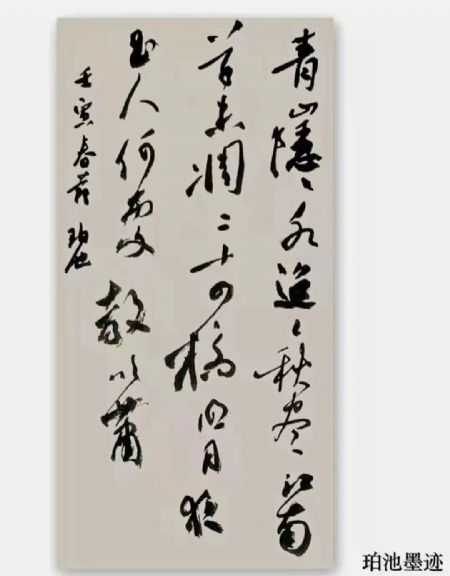 青山隱〻水迢〻秋尽江南
草未凋二十四橋明月夜
玉人何處教吹蕭
壬寅春节 珀池
珀池墨迹